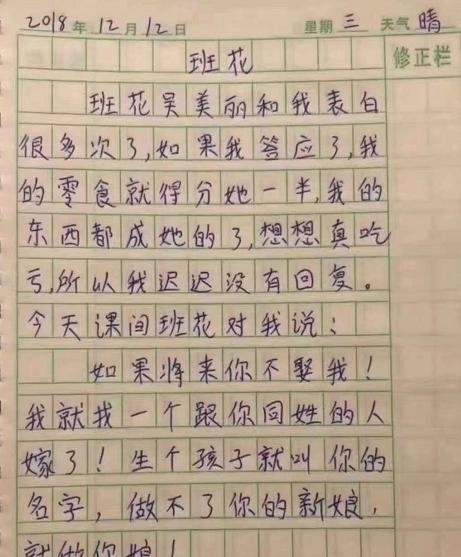 2018年12月12日 星期三 天气晴
班花 修正栏
班花吴美丽和我表白
很多次了,如果我答应了,我
的零食就得分她一半,我的
东西都成她的了,想想真吃
亏,所以我迟迟没有回复。
今天课间班花对我说:
如果将来你不娶我!
我就找一个跟你同姓的人
嫁了!生个孩子就叫你的
名字,做不了你的新娘,
就做你娘!